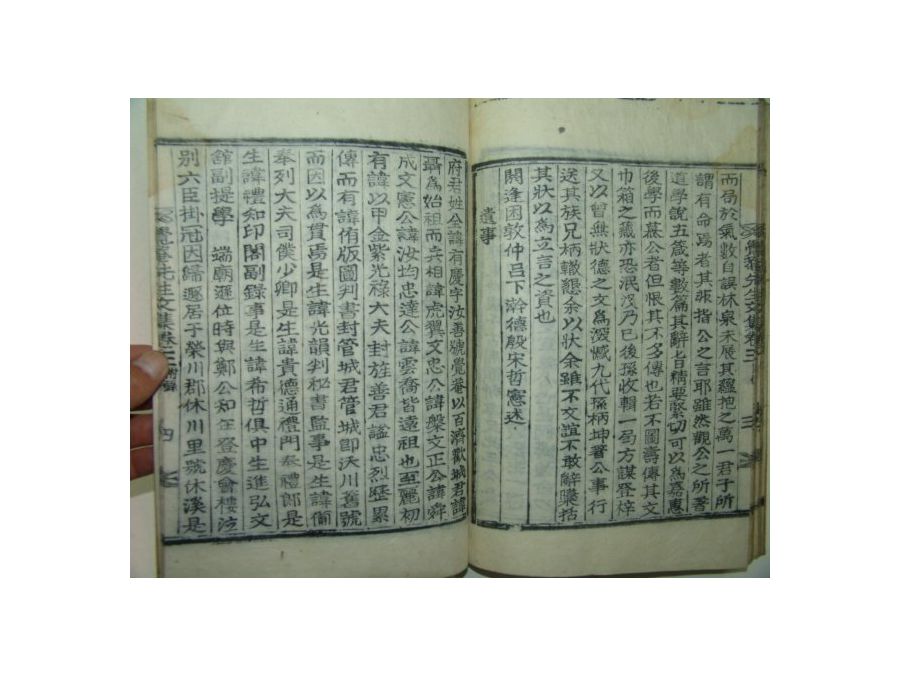 而局於氣數自誤林泉未展其蘊抱之萬一君子所
謂有命焉者其報指公之言耶雖然觀公之所著
道學說五箴等數篇其辭旨精要緊切可以爲嘉惠
後學而慕公者但恨其不多傳也若不圖壽傳其文
巾箱之藏亦恐泯乃已後孫收輯一局方謀登梓
又以曾無狀德之文爲深憾九代孫柄坤著公事行
送其族兄柄轍懇余以狀余雖不文誼不敢辭檃括
其狀以爲立言之資也
閼逢困敦仲呂下澣德殷宋哲憲述
遺事
府君姓全諱有慶字汝善號覺菴以百濟歡城君諱
聶爲始祖而兵相諱虎翼文忠公諱槃文正公諱舜
成文憲公諱汝均忠達公諱雲喬皆遠祖也至麗初
有諱以甲金紫光祿大夫封旌善君諡忠烈歷累
傳而有諱侑版圖判書封管城君管城卽沃川舊號
而因以爲貫焉是生諱光韻判秘書監事是生諱僩
奉列大夫司僕少卿是生諱貴德通禮門奉禮郎是
生諱禮知印閣副錄事是生諱希哲俱中生進弘文
舘副提學 端廟遜位時與鄭公知年登慶會樓泣
別六臣掛冠因歸遯居于榮川郡休川里號休溪是
覺菴先生文集卷三 附錄 四